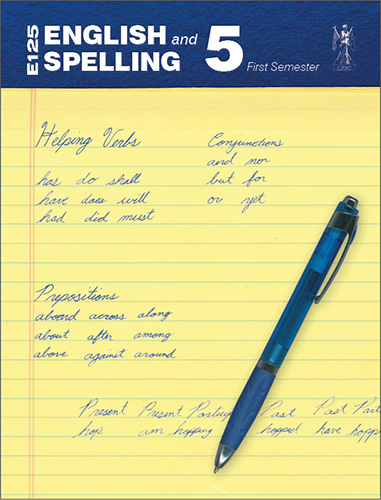 E125
ENGLISH and
SPELLING
5
First Semester
Helping Verbs
has do shall
have does will
had did must
Conjunctions
and nor
but for
or yet
Prepositions
aboard across along
about after among
above against around
Present Present Particip Past Past Part
hop am hopping hopped have hoppe